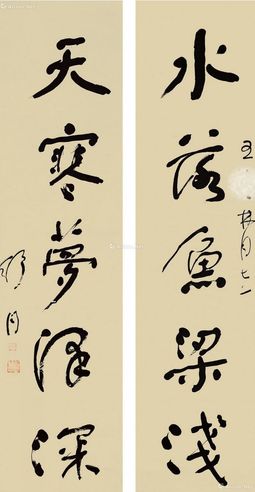 水落魚梁淺
天寒夢澤深